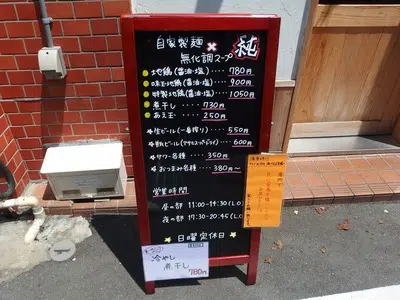 自家製麺 × 無化調スープ 純
地鶏(醤油・塩)‥‥780円
味玉地鶏(醤油・塩)‥900円
特製地鶏(醤油・塩)‥1050円
煮干し‥‥730円
あえ玉‥‥250円
生ビール(一番搾り)‥550円
‥‥600円
サワー各種‥‥350円
おつまみ各種‥‥380円~
営業時間
昼の部 11:00-14:30(L.O)
夜の部 17:30-20:45(L.O)
★日曜定休日★
冷やし
煮干し
780円